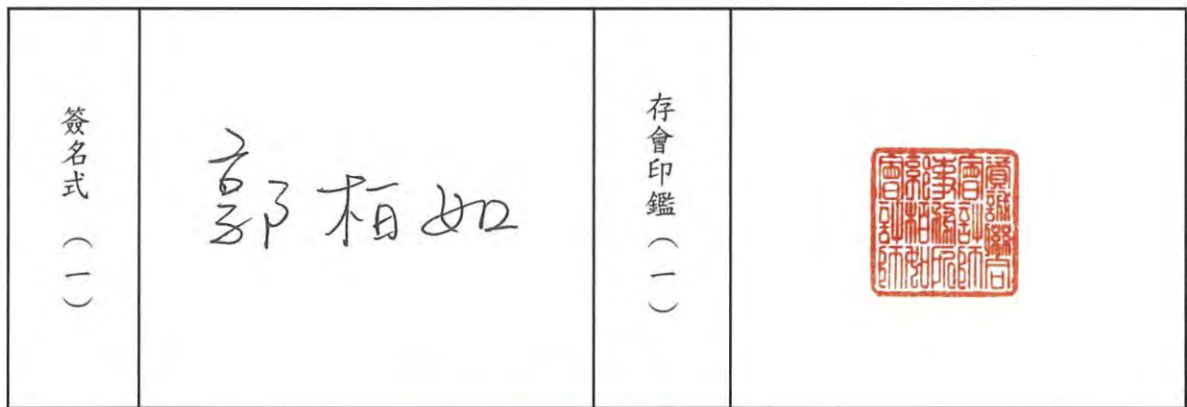 簽名式(一)
郭柏如
存會印鑑(一)
資誠聯合
會計師
事務所
郭柏如
會計師